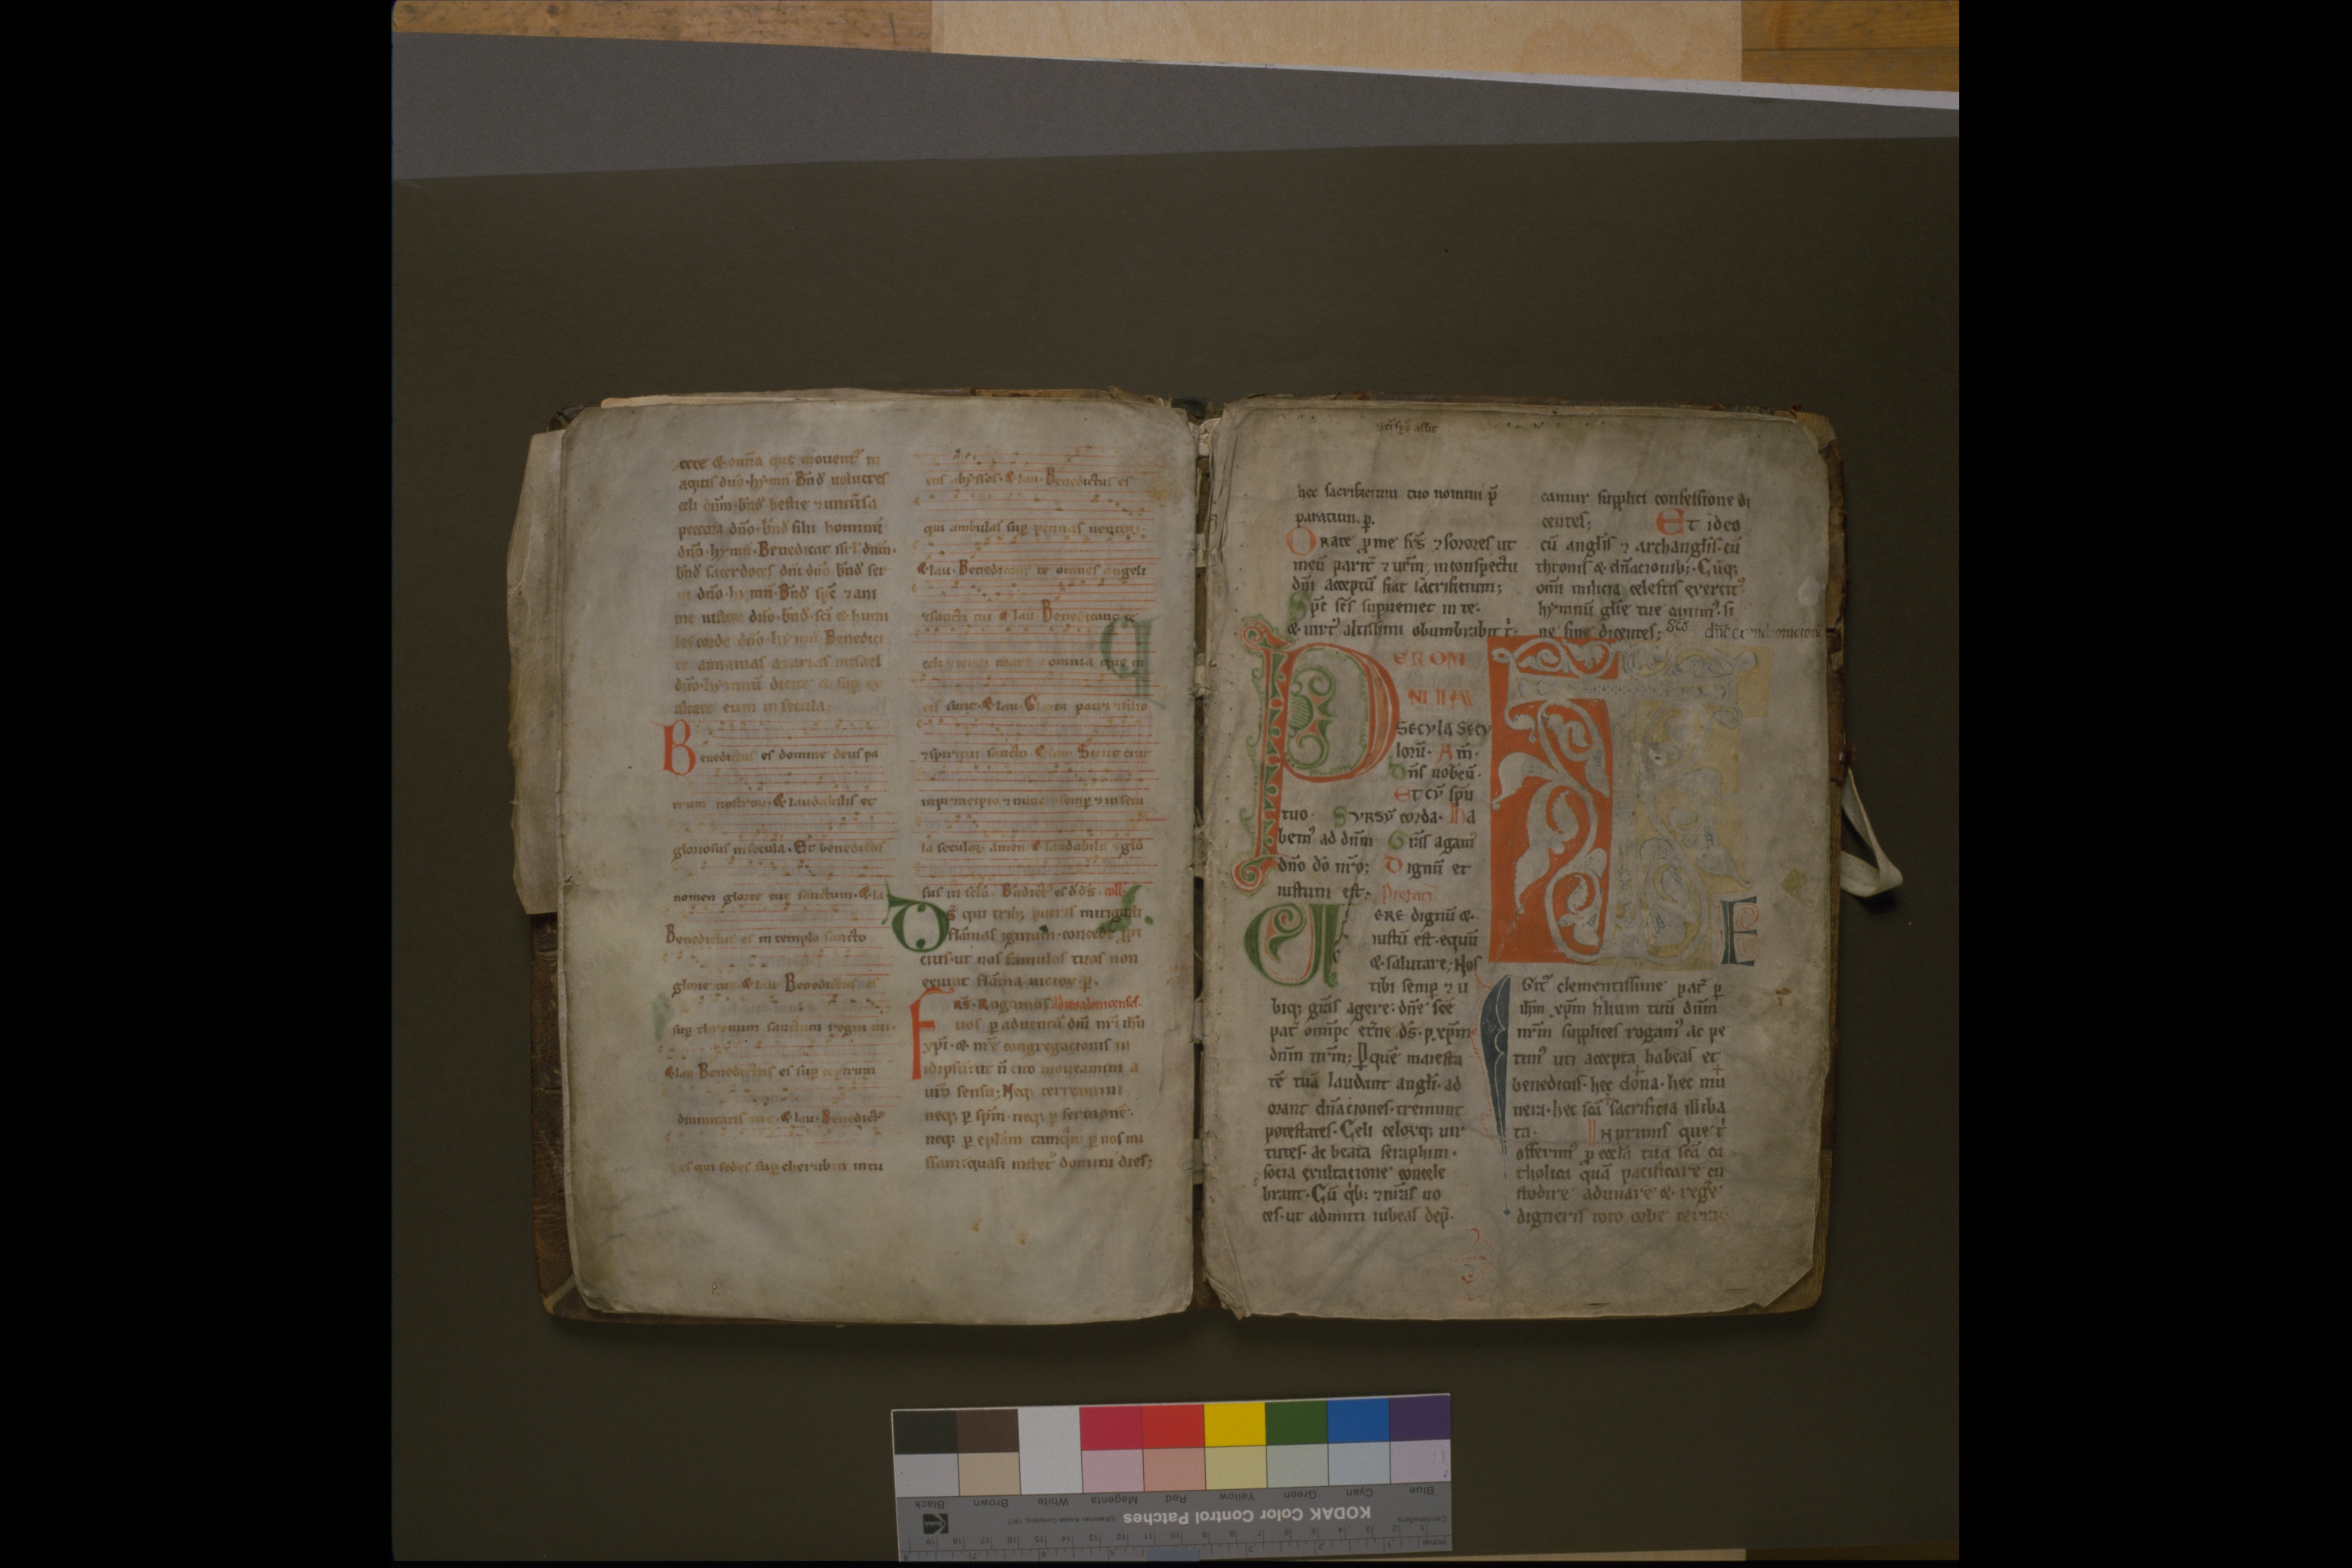 aquis dno·hymn Bnd uolucres
celi dnm·bnd bestie ⁊ uniusa
peccora dno·bnd filii hominũ
dno·hymn·Benedicat isrl dnm·
bnd sacerdotes dni dno bnd ser
ui dno·hymn·Bnd spc ⁊ ani
me iustor dno·bnd·sci & humi
les corde dno hymn Benedici
te annanias azarias misael
dno·hymnũ dicite & sup ex
altate eum in secula;
Benedictus es domine deus pa
trum nostror·& laudabilis et
gloriosus in secula·Et benedictũ
nomen glorie tue sanctum·& la
Benedictus es in templo sancto
glorie tue·& lau Benedictus es
sup thronum sanctum regni tui·
& lau Benedictus es sup sceptrum
diuinitatis tue·& lau·Benedict
es qui sedes sup cherubin intu
ens abyssos·& lau·Benedictus es
qui ambulas sup pennas uentor·
& lau·Benedicant te omnes angeli
⁊ sancti tui & lau·Benedicant te
celi ⁊ terra mare ⁊ omnia que in
eis sunt·& lau·Gloria patri ⁊ filio
⁊ spiritui sancto & lau·Sicut erat
in principio ⁊ nunc ⁊ semp ⁊ in secu
la seculor amen & laudabilis ⁊ glo
sus in sela·Bndict es d·d·s·coll·
Ds qui trib; pueris mitigasti
flamas ignium·concede ppi
cius·ut nos famulos tuos non
exurat flama uicior p.
Frs·Rogamus
uos p aduentũ dni nri ihu
xpi·& nre congregacionis in
idipsũ·ut ñ cito moueamini a
uro sensu; Neq; terreamini
neq; p spm·neq; p sermonẽ·
neq; p eplam tamqm p nos mi
ssam·quasi instet domini dies;
hec sacrificium tuo nomini p̃
paratum·p.
Orate p me frs ⁊ sorores ut
meũ parit ⁊ urm, in conspectu
dni acceptũ fiat sacrificium;
Spc scs supueniet in te·
& uirt altissimi obumbrabit t·
PER OM
NIIA
SECVLA SECV
lorũ·Am·
Dns uobcũ·
ET CV̄ spu
tuo·SVRSV̄ corda·Ha
bem ad dnm Gras agam
dno do nro; Dignũ et
iustum est·Prefaci
VERE dignũ &
iustũ est·equũ
& salutare; Nos
tibi semp ⁊ u
biq; gras agere·dne sce
pat omps etne ds·p xpm
dnm nrm; P quẽ maiesta
tẽ tuã laudant angli·ad
orant dnaciones·tremunt
potestates·Celi celorq; uir
tutes·ac beata seraphim·
socia exultacione concele
brant·Cũ qb; ⁊ nras uo
ces·ut admitti iubeas dep·
camur supplici confessione di
centes; Et ideo
cũ anglis ⁊ archanglis·cũ
thronis & dnacionib;·Cũq;
omi milicia celestis exercit
hymnũ glie tue canim·si
ne fine dicentes; Scs
TE
IGIT clementissime pat p
ihm xpm filium tuũ dnm
nrm supplices rogam ac pe
tim uti accepta habeas et
benedicas·hec dona·hec mu
nera·hec sca sacrificia illiba
ta·INprimis que t
offerim p eccla tua sca ca
tholica quã pacificare cu
stodire adunare & rege
digneris toto orbe terrar
KODAK Color Control Patches
©Eastman Kodak Company, 1977
Blue
Cyan
Green
Yellow
Red
Magenta
White
Brown
Black
Kodak
Centimetres
1 2 3 4 5 6 7 8 9 10 11 12 13 14 15 16 17 18 19
Inches